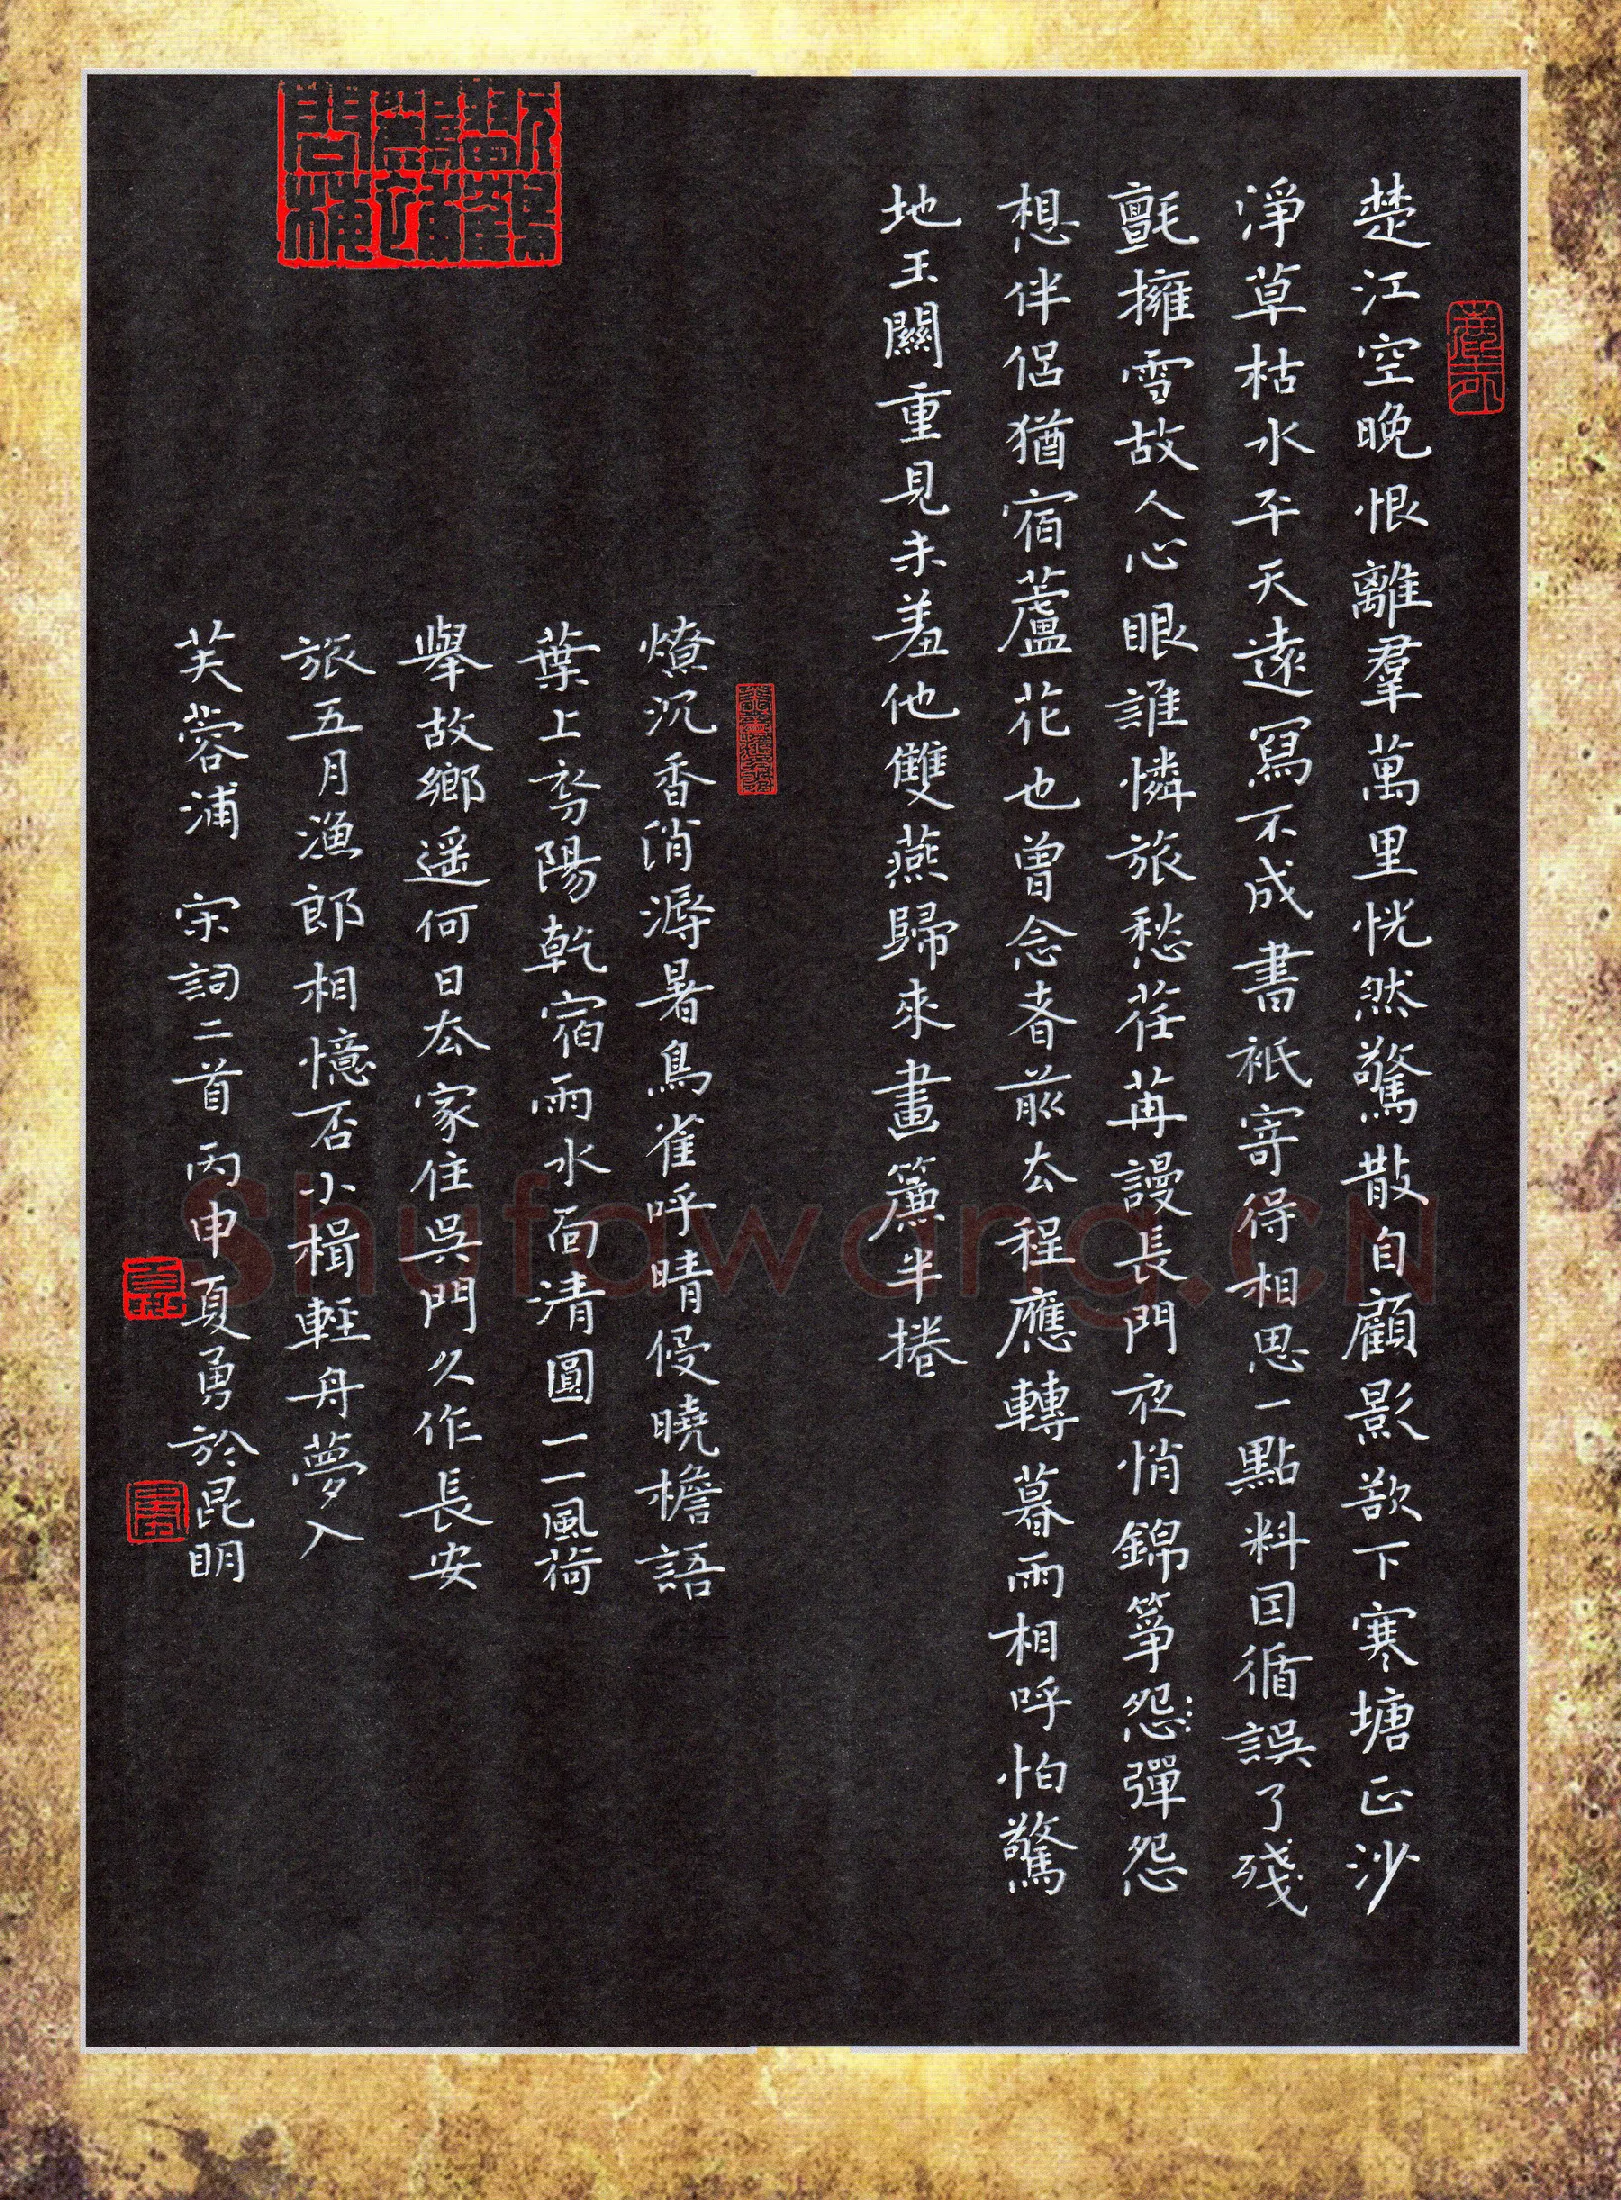 楚江空晚恨離羣萬里恍然驚散自顧影欲下寒塘正沙
淨草枯水平天遠寫不成書祇寄得相思一點料因循誤了殘
氈擁雪故人心眼誰憐旅愁荏苒謾長門夜悄錦箏怨彈怨
想伴侶猶宿蘆花也曾念春前去程應轉暮雨相呼怕驚
地玉關重見未羞他雙燕歸來畫簾半捲
燎沉香消溽暑鳥雀呼晴侵曉檐語
葉上初陽乾宿雨水面清圓一一風荷
舉故鄉遥何日去家住吳門久作長安
旅五月漁郎相憶否小楫輕舟夢入
芙蓉浦 宋詞二首丙申夏勇於昆明
Shufawang.cn